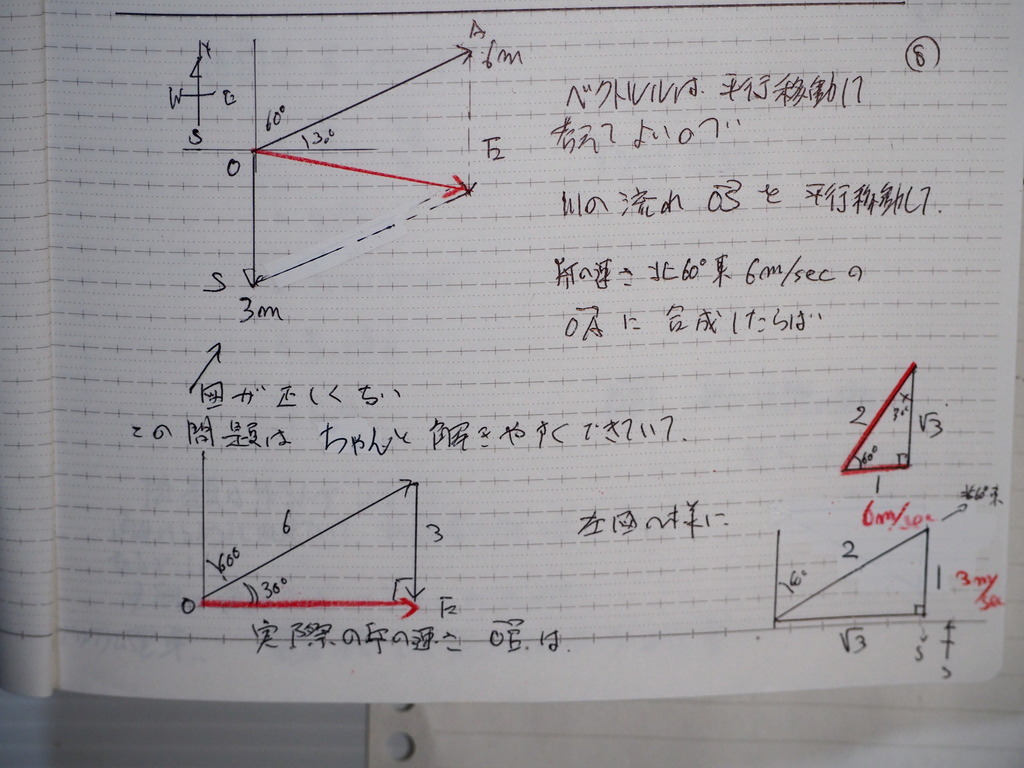 ⑧
N
W E
S
A
6m
60°
30°
O
E
S
3m
ベクトルは 平行移動して
考えてよいので
川の流れ OS を 平行移動して.
舟の速さ 北60°東 6m/secの
OA に 合成したらば
図が正しくない
この問題は ちゃんと 解きやすくできていて.
2
30°
√3
60°
1
6
60°
30°
3
O
E
左図の様に
6m/sec
北60°東
2
60°
1
3m/sec
√3
S
実際の舟の速さ OE は